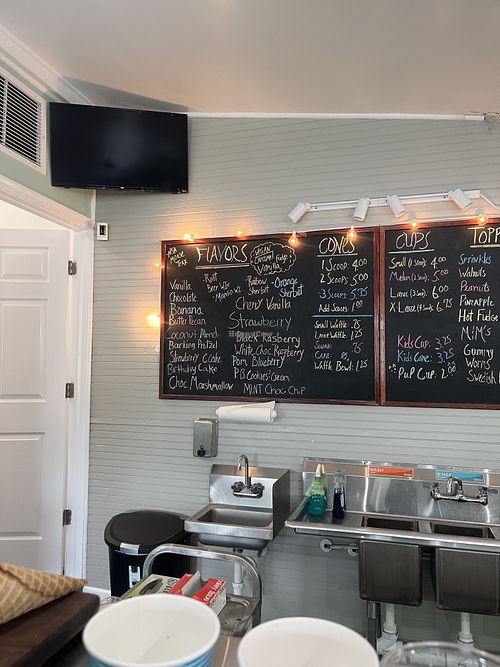 FLAVORS
VEGAN
Caramel Fudge
Vanilla
Vanilla
Chocolate
Banana
Butter Pecan
Coconut Almond
Barking Pretzel
Strawberry C.Cake
Birthday Cake
Choc Marshmallow
Root
Beer VIs
Mango VI
Rainbow
Sherbet
Orange
Sherbet
Cherry Vanilla
Strawberry
Black Rasberry
White Choc Raspberry
Pom. Blueberry
P.B. Cookies Cream
MINT Choc Chip
CONES
1 Scoop: 4.00
2 Scoops 5.00
3 Scoops 5.75
Add Scoops 1.00
Small Waffle .75
Large Waffle: 1.25
Waffle Bowl: 1.25
CUPS
Small (1 Scoop) 4.00
Medium (2 Scoops) 5.00
Large (3 Scoops) 6.00
X Large (4 Scoops) 6.75
Kids Cup: 3.25
Kids Cone: 3.25
Pup Cup: 2.00
TOPP
Sprinkles
Walnuts
Peanuts
Pineapple
Hot Fudge
M:M's
Gummy
Worms
Swedish
WASH
RINSE